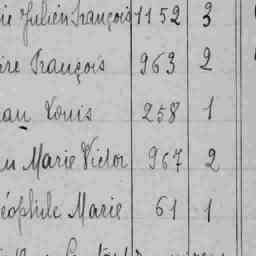 ie Julien François 1152 3
re François 963 2
an Louis 258 1
n Marie Victor 967 2
éophile Marie 61 1